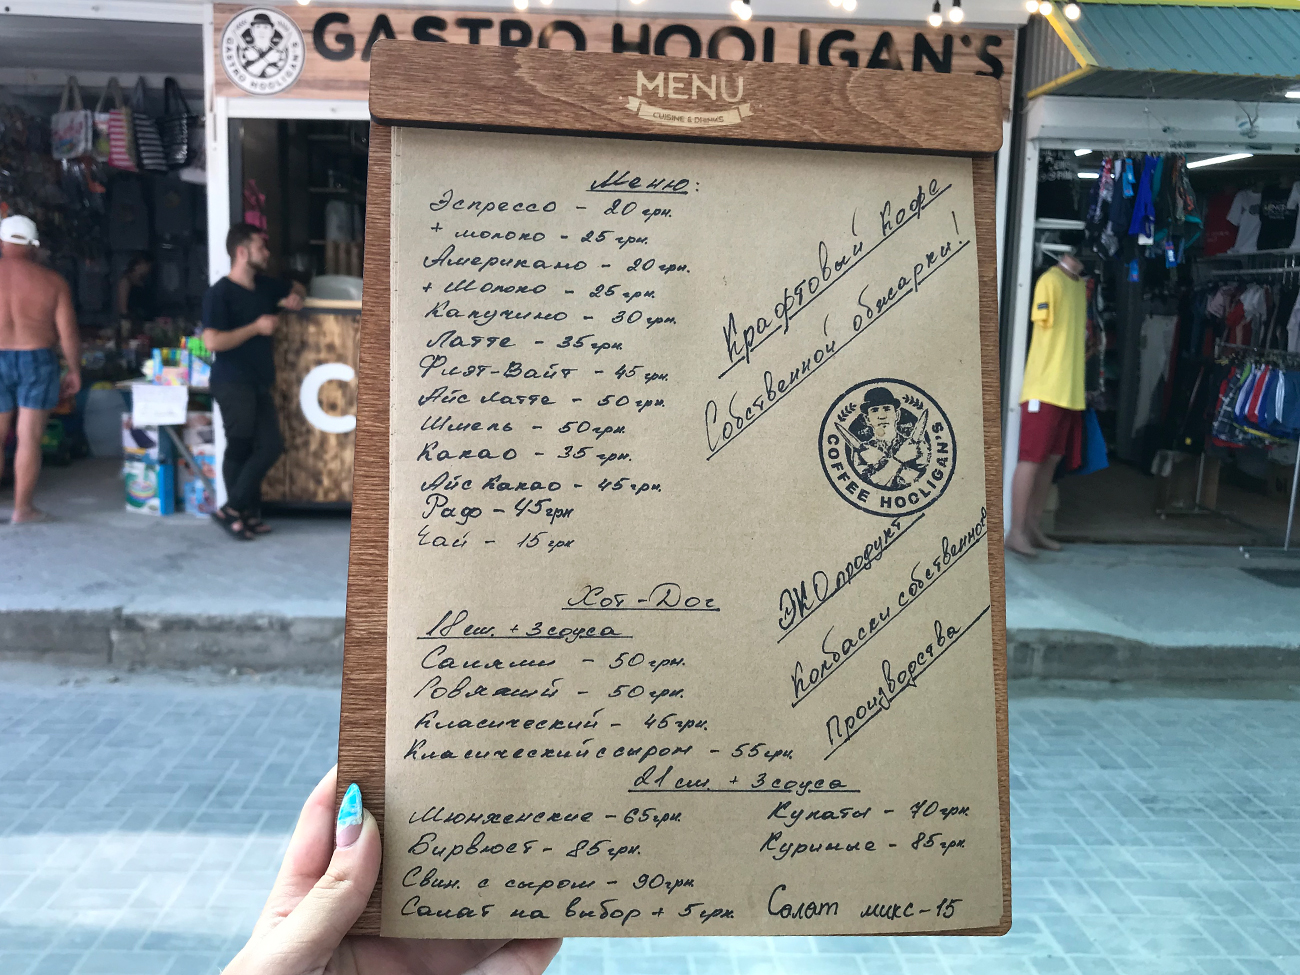 GASTRO HOOLIGAN'S
GASTRO HOOLIGAN'S
MENU
CUISINE & DRINKS
Меню:
Эспрессо - 20грн.
+ молоко - 25грн.
Американо - 20грн.
+ Молоко - 25грн.
Капучино - 30грн.
Латте - 35грн.
Флэт-Вайт - 45грн.
Айс латте - 50грн.
Шмель - 50грн.
Какао - 35грн.
Айс Какао - 45грн.
Раф - 45грн
Чай - 15грн
Крафтовый Кофе
Собственной обжарки!
COFFEE HOOLIGAN'S
ЭКОпродукт
Колбаски собственного
Производства
Хот-Дог
18см. + 3соуса
Салями - 50грн.
Говяжий - 50грн.
Класический - 45грн.
Класический с сыром - 55грн.
21см. + 3соуса
Мюнхенские - 65грн.
Бирвюст - 85грн.
Свин. с сыром - 90грн.
Салат на выбор + 5грн.
Купаты - 70грн.
Куриные - 85грн.
Салат микс-15
C